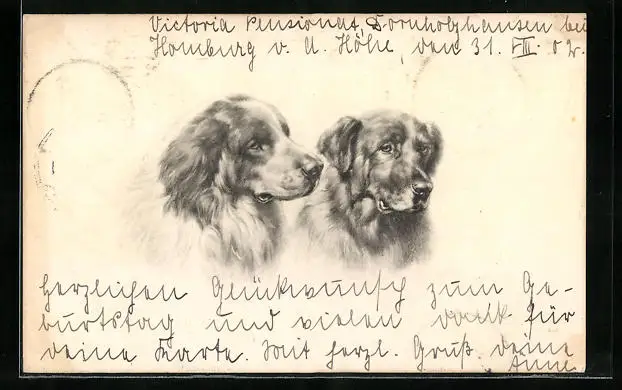 Victoria Pensionat, Dornholzhausen bei
Homburg v. d. Höhe, den 31. VIII. 02.
Herzlichen Glückwunsch zum Ge-
burtstag und vielen Dank für
deine Karte. Mit herzl. Gruß. deine
Anne.